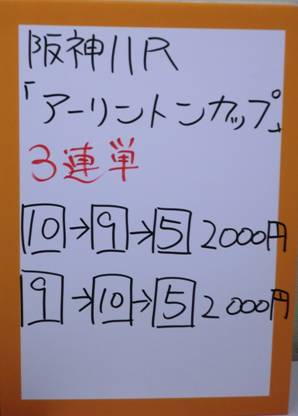 阪神11R
「アーリントンカップ」
3連単
10→9→5 2000円
9→10→5 2000円